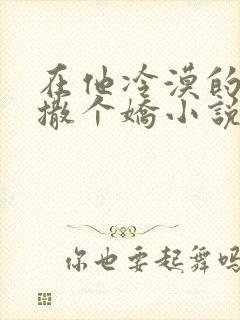 在他冷漠的
撒个嬌小説
你也要起舞吗